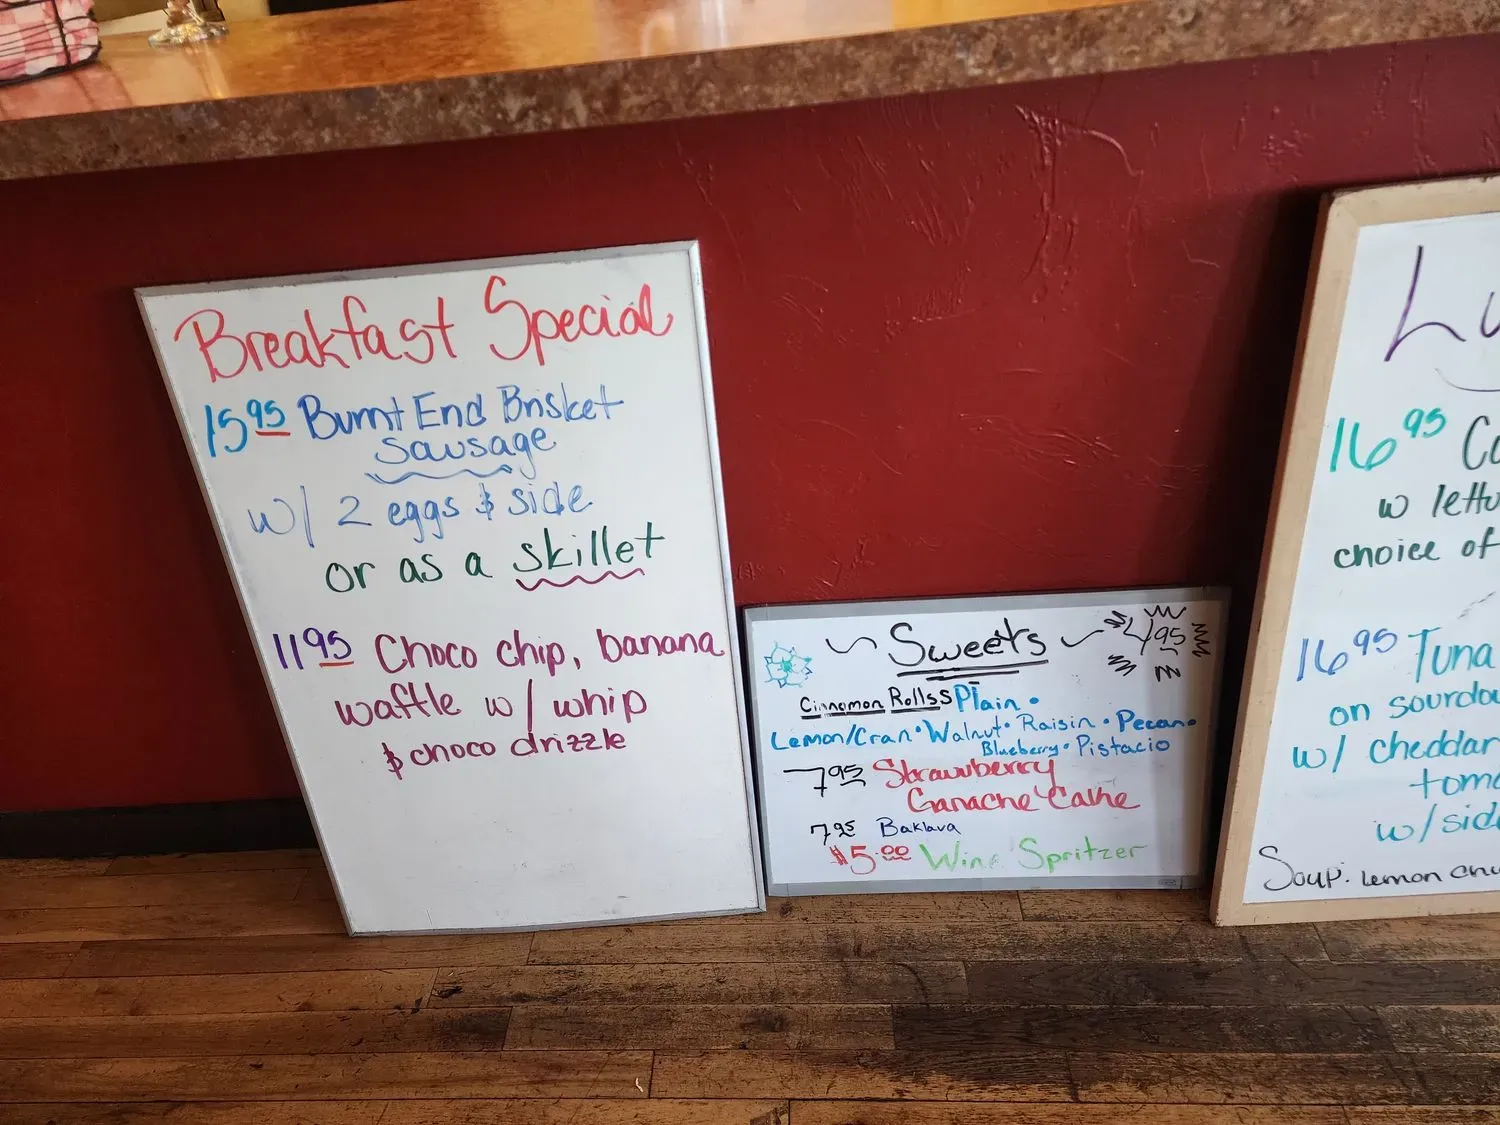 Breakfast Special
15.95 Burnt End Brisket
Sausage
w/ 2 eggs & side
or as a skillet
11.95 Choco chip, banana
waffle w/ whip
& choco drizzle
~ Sweets ~ 4.95
Cinnamon Rollss Plain •
Lemon/Cran • Walnut • Raisin • Pecan •
Blueberry • Pistacio
7.95 Strawberry
Ganache Cake
7.95 Baklava
$5.00 Wine Spritzer
16.95
w
choice of
16.95 Tuna
on
w/ cheddar
w/
Soup: Lemon